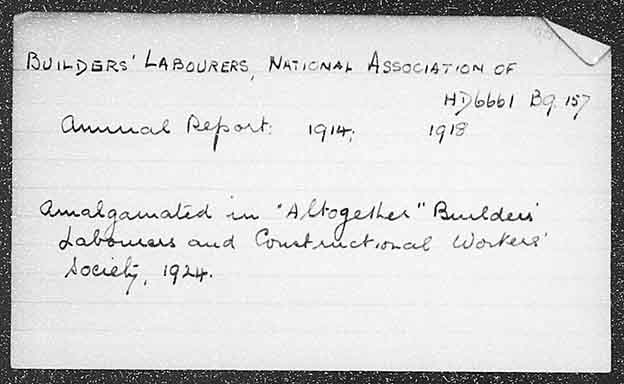 BUILDERS' LABOURERS, NATIONAL ASSOCIATION OF
HD6661 B9.157
Annual Report: 1914; 1918
Amalgamated in "Altogether" Builders'
Labourers and Constructional Workers'
Society, 1924.